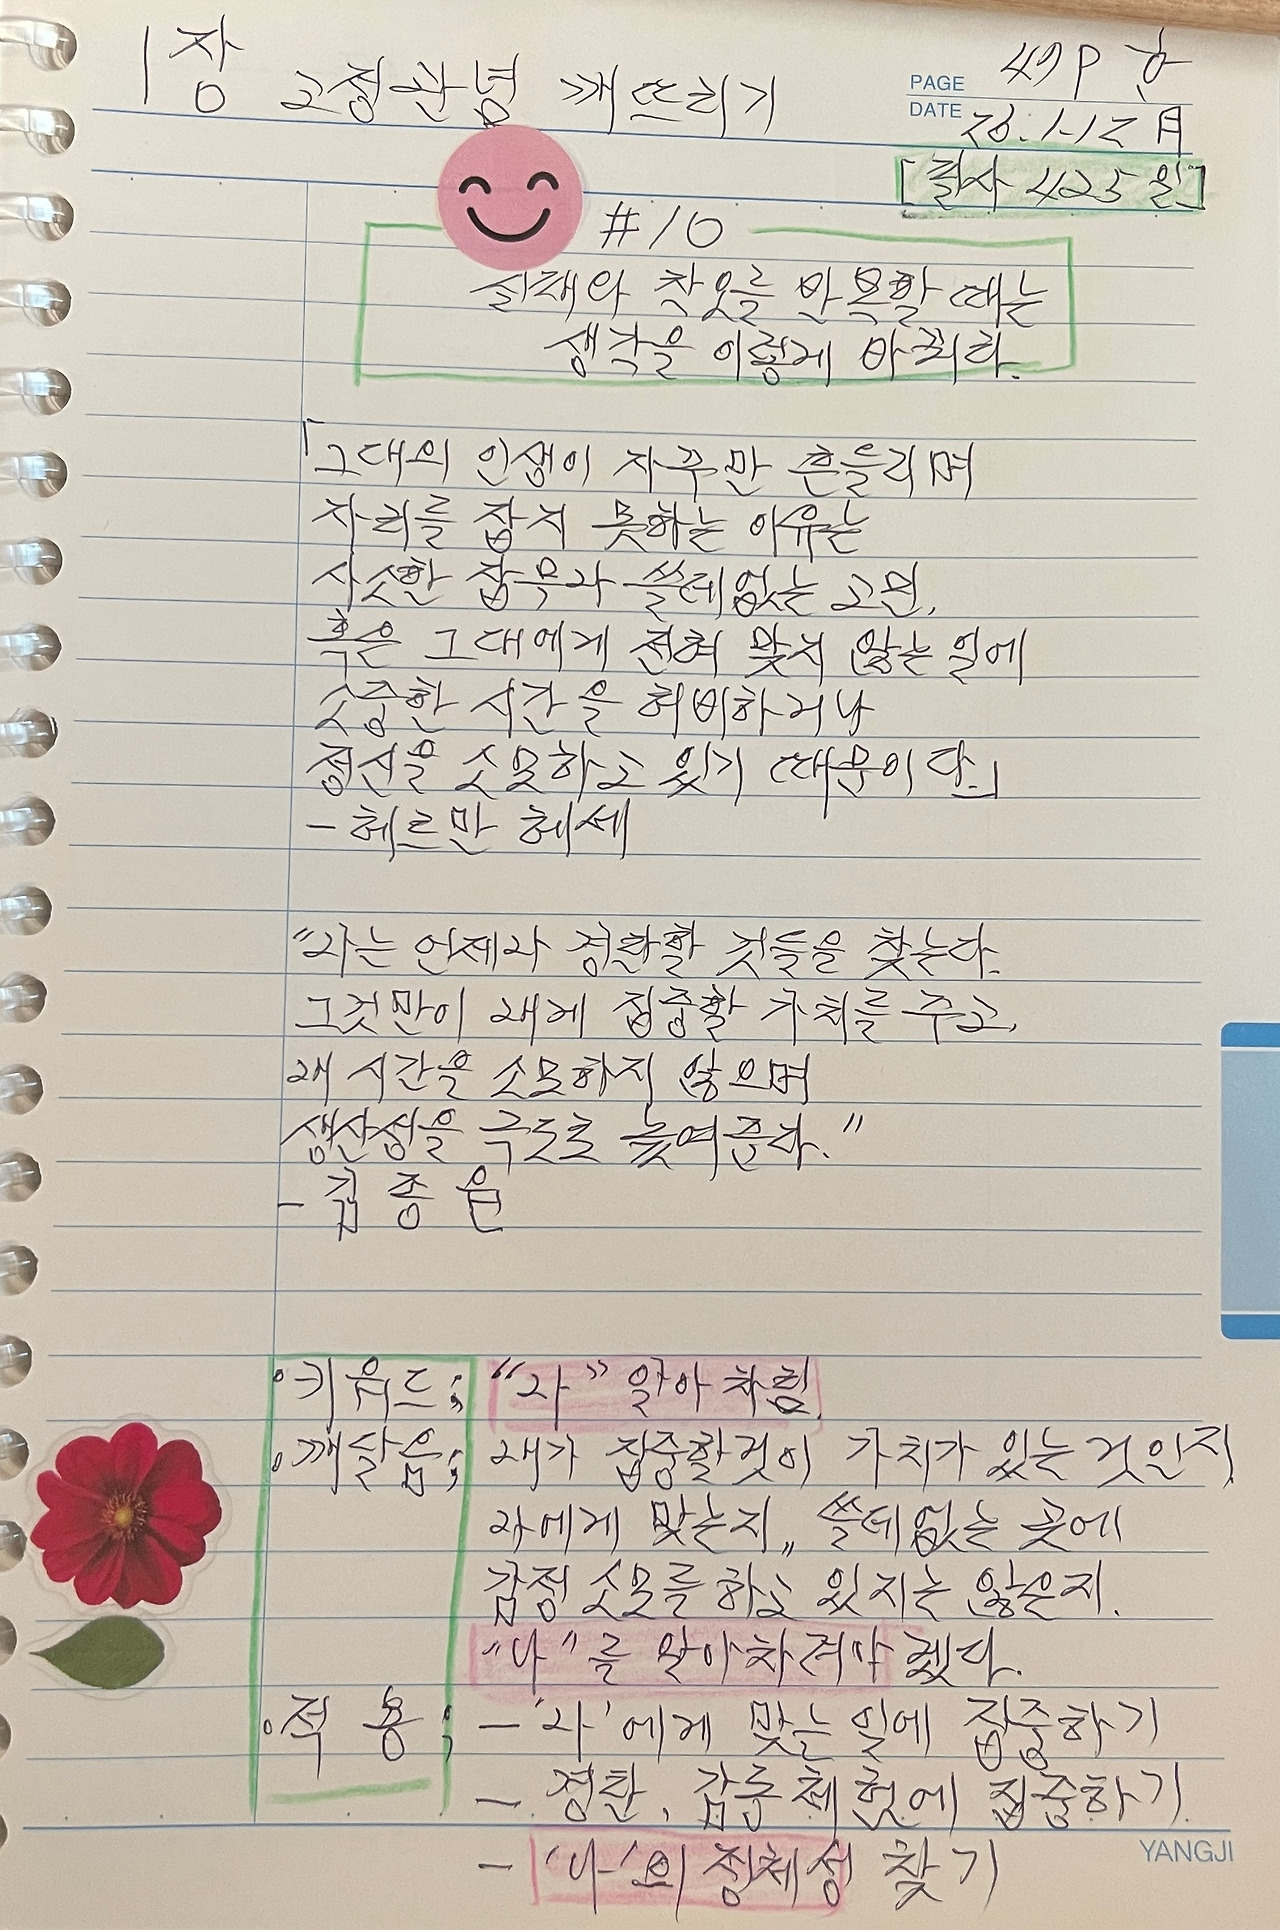 1장 고정관념 깨뜨리기
49P 한
PAGE
DATE 26.1.12 月
[필사 425일]
#10
실패와 착오를 반복할 때는
생각을 이렇게 바꿔라.
「그대의 인생이 자꾸만 흔들리며
자리를 잡지 못하는 이유는
사소한 잡무와 쓸데없는 고민,
혹은 그대에게 전혀 맞지 않는 일에
소중한 시간을 허비하거나
정신을 소모하고 있기 때문이다.」
- 헤르만 헤세
"나는 언제나 경탄할 것들을 찾는다.
그것만이 내게 집중할 가치를 주고,
내 시간을 소모하지 않으며
생산성을 극도로 높여준다."
- 김종원
키워드; "나" 알아차림
깨달음; 내가 집중할것이 가치가 있는 것인지
나에게 맞는지,, 쓸데없는 곳에
감정 소모를 하고 있지는 않은지.
"나"를 알아차려야 겠다.
적용; - '나'에게 맞는 일에 집중하기
- 경탄, 감동체험에 집중하기
YANGJI
- '나'의 정체성 찾기